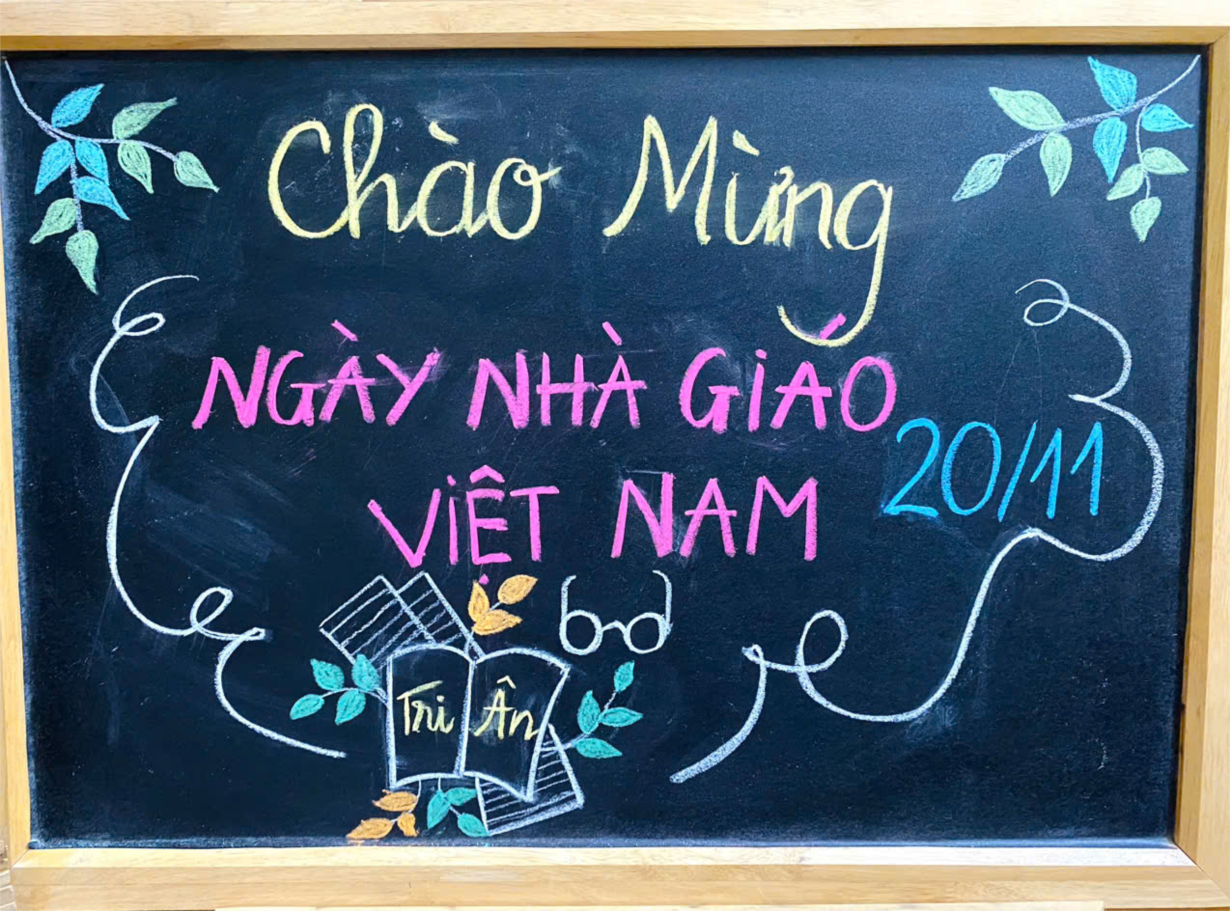 Chào Mừng
NGÀY NHÀ GIÁO
VIỆT NAM 20/11
Tri Ân